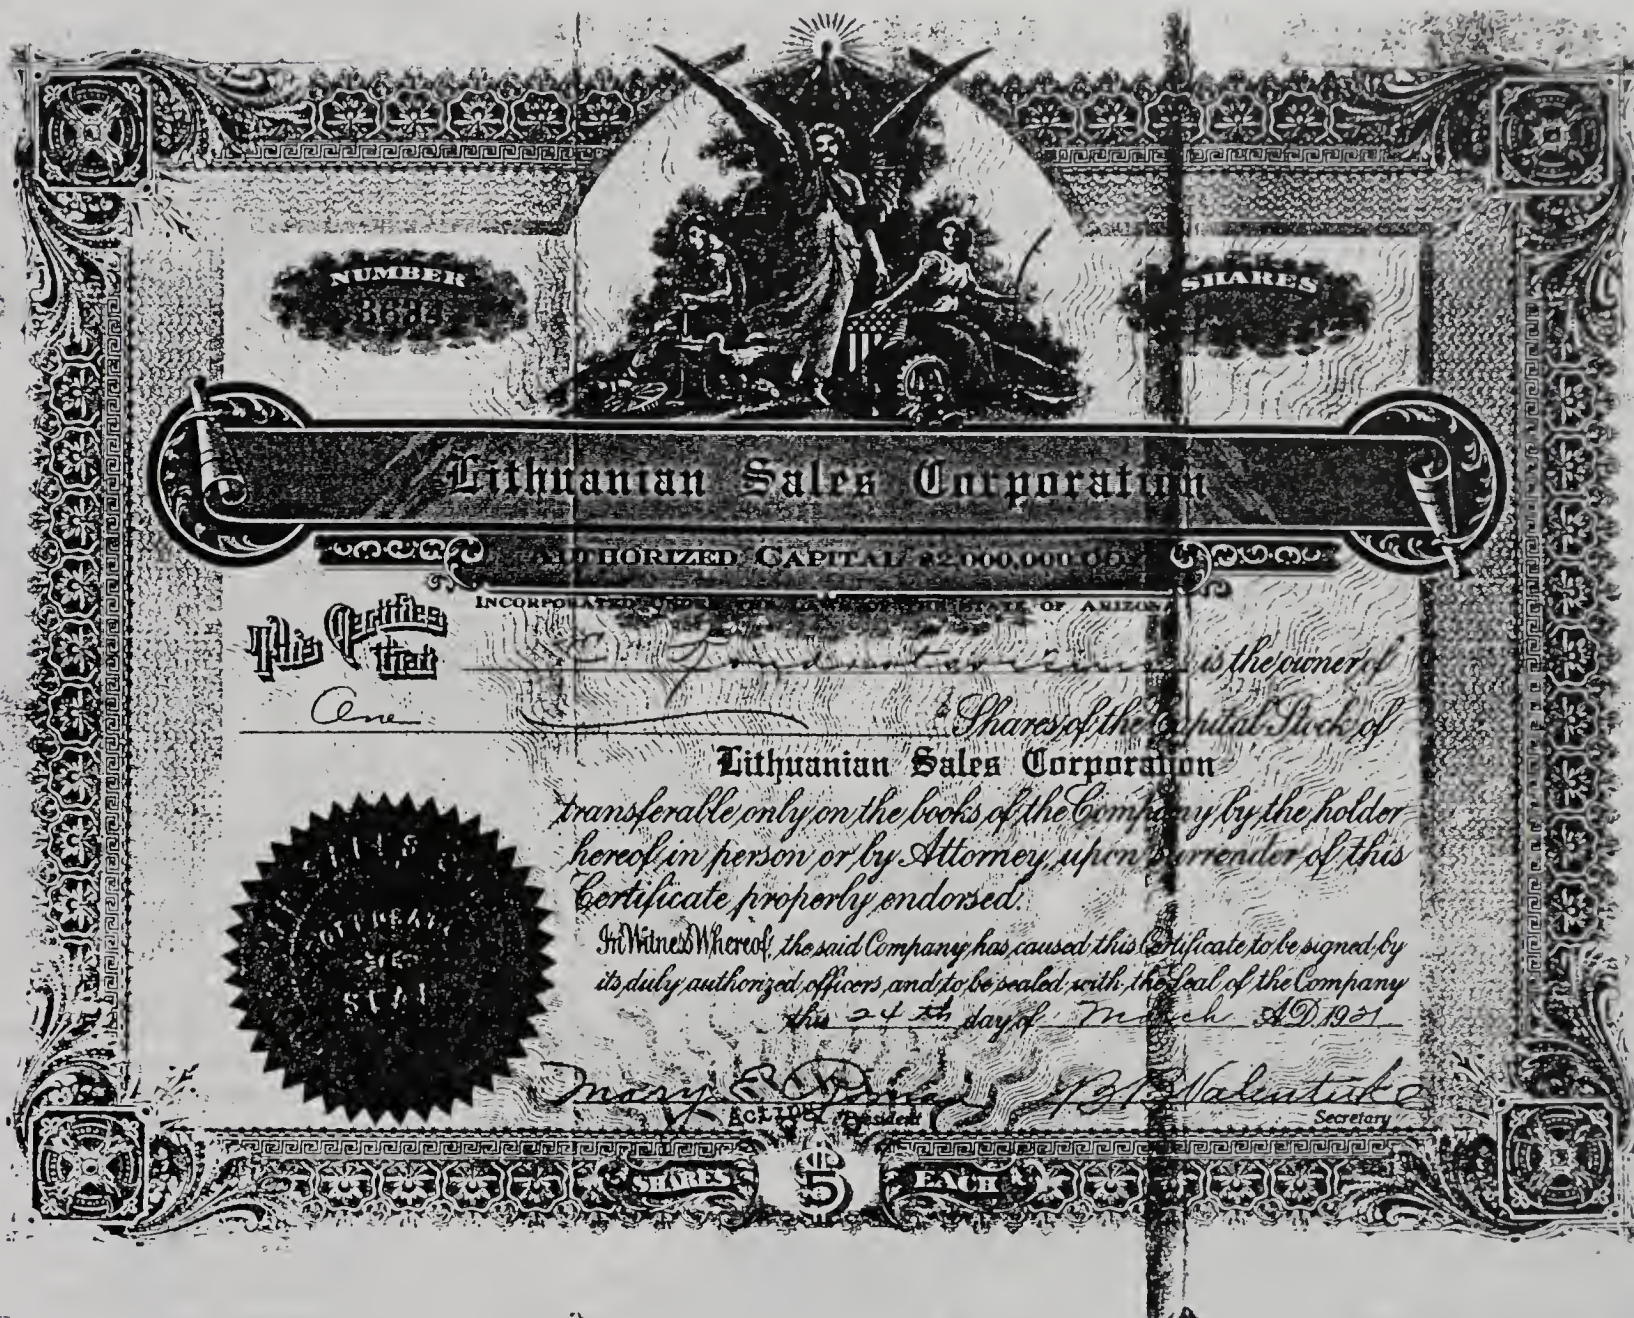 NUMBER
SHARES
Lithuanian Sales Corporation
AUTHORIZED CAPITAL $2,000,000.00
INCORPORATED UNDER THE LAWS OF THE STATE OF ARIZONA
This Certifies that is the owner of
One Shares of the Capital Stock of
Lithuanian Sales Corporation
transferable only on the books of the Company by the holder
hereof in person or by Attorney upon surrender of this
Certificate properly endorsed.
In Witness Whereof, the said Company has caused this Certificate to be signed by
its duly authorized officers, and to be sealed with the Seal of the Company
this 24th day of March A.D. 1921
Mary E.
President
Secretary
SHARES $5 EACH
SEAL